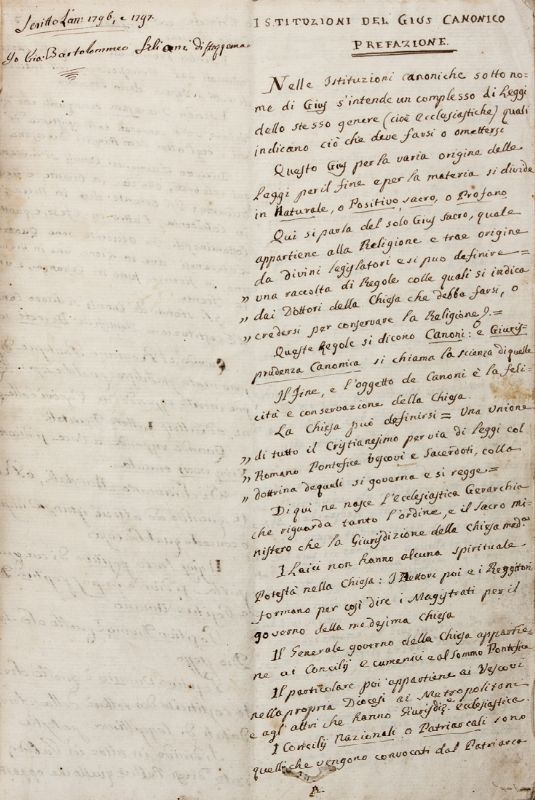 Scritto l'an: 1796, e 1797.
Io Gio: Bartolommeo
ISTITUZIONI DEL GIUS CANONICO
PREFAZIONE.
Nelle Istituzioni canoniche sotto no=
me di Gius s'intende un complesso di Leggi
dello stesso genere (cioè ecclesiastiche) quali
indicano ciò che deve farsi o omettersi
Questo Gius per la varia origine delle
Leggi per il fine e per la materia si divide
in Naturale, o Positivo, sacro, o Profano
Qui si parla del solo Gius sacro, quale
appartiene alla Religione e trae origine
da divini legislatori e si puo definire=
„ una raccolta di Regole colle quali si indica
„ dai Dottori della Chiesa che debba farsi, o
„ credersi per conservare la Religione=
Queste Regole si dicono Canoni: e Giuris=
prudenza Canonica si chiama la scienza di quelle
Il Fine, e l'oggetto de Canoni è la feli=
cità e conservazione della Chiesa
La Chiesa può definirsi= Una Unione
„ di tutto il Cristianesimo per via di leggi col
„ Romano Pontefice Vescovi e Sacerdoti, colla
„ dottrina de quali si governa e si regge=
Di qui ne nasce l'ecclesiastica Gerarchia
che riguarda tanto l'ordine, e il sacro mi=
nistero che la Giurisdizione della Chiesa med.ma
I Laici non hanno alcuna spirituale
Potestà nella Chiesa: I Rettori poi e i Reggitori
formano per così dire i Magistrati per il
governo della medesima Chiesa
Il Generale governo della Chiesa appartie=
ne ai Concilj ecumenici e al Sommo Pontefice
Il particolare poi appartiene ai Vescovi
nella propria Diocesi ai Metropolitani
e agli altri che hanno Giurisdiz.e Ecclesiastica
I Concilj Nazionali o Patriarcali sono
quelli che vengono convocati dal Patriarca
A.